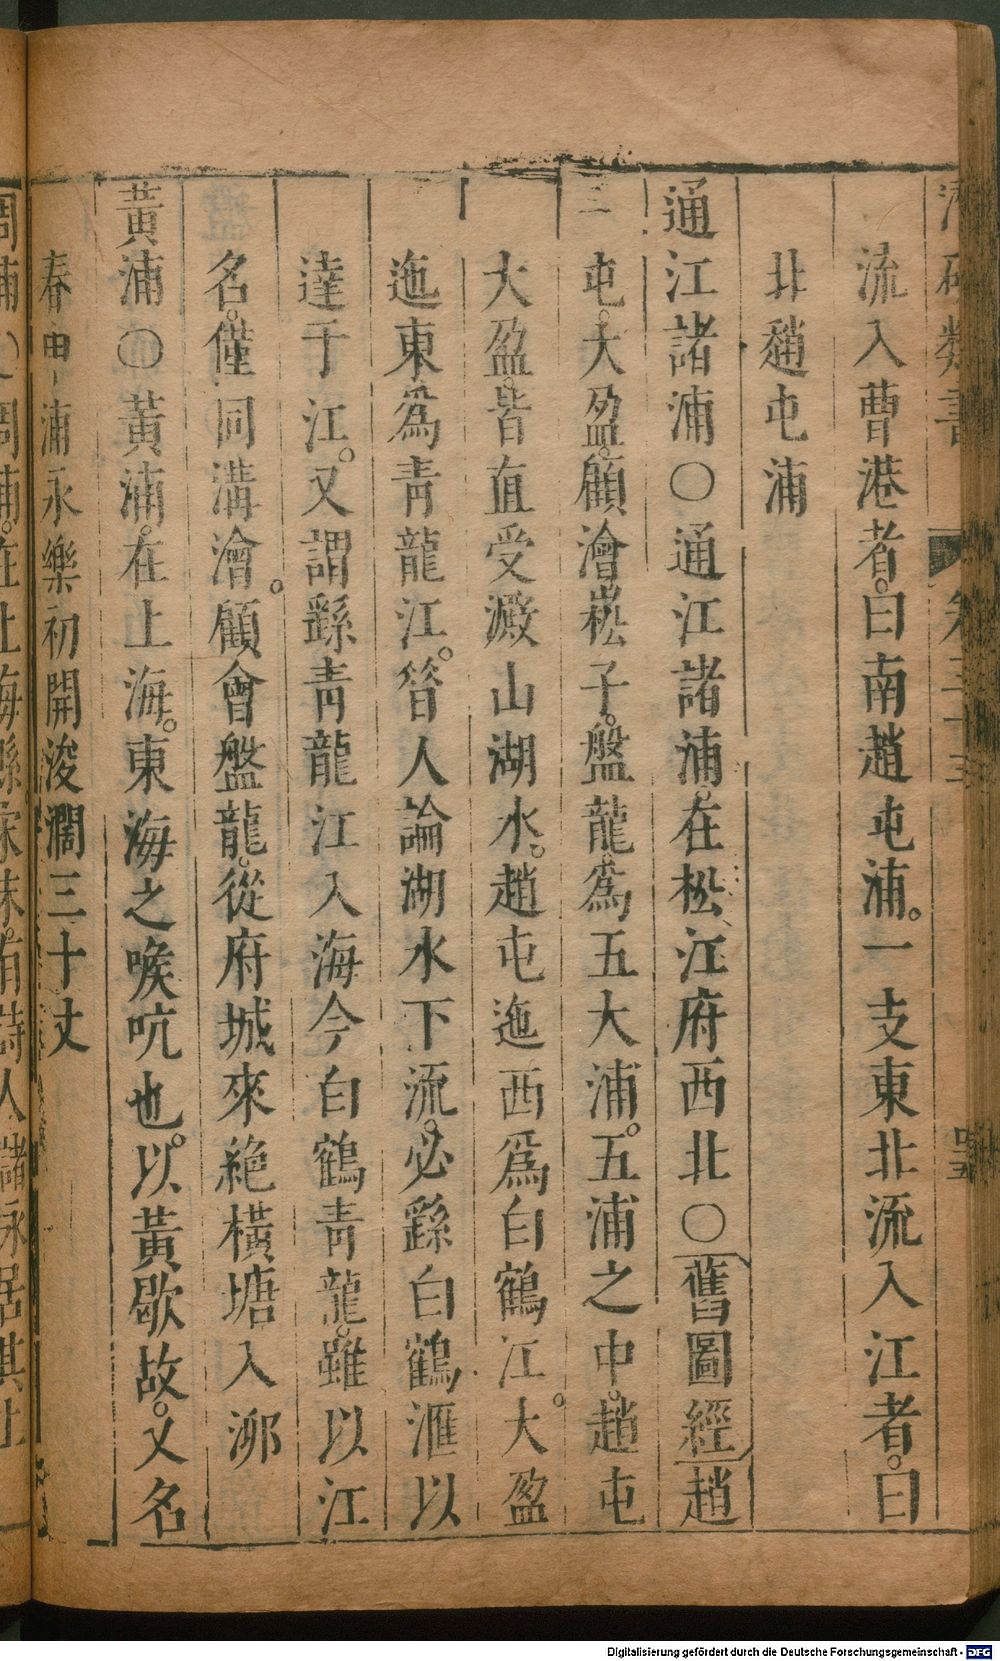 流入曹港者。曰南趙屯浦。一支東北流入江者。曰
北趙屯浦
通江諸浦〇通江諸浦。在松江府西北〇舊圖經趙
屯。大盈。顧澮崧子。盤龍。爲五大浦。五浦之中。趙屯
大盈。皆直受澱山湖水。趙屯迤西爲白鶴江。大盈
迤東爲靑龍江。昝人論湖水下流。必繇白鶴滙以
達于江。又謂繇靑龍江入海今白鶴靑龍。雖以江
名。僅同溝澮。顧會盤龍。從府城來絶橫塘入泖
黃浦〇黃浦。在上海。東海之喉吭也。以黃歇故。又名
春申浦永樂初開浚濶三十丈
周浦〇周浦。在上海縣